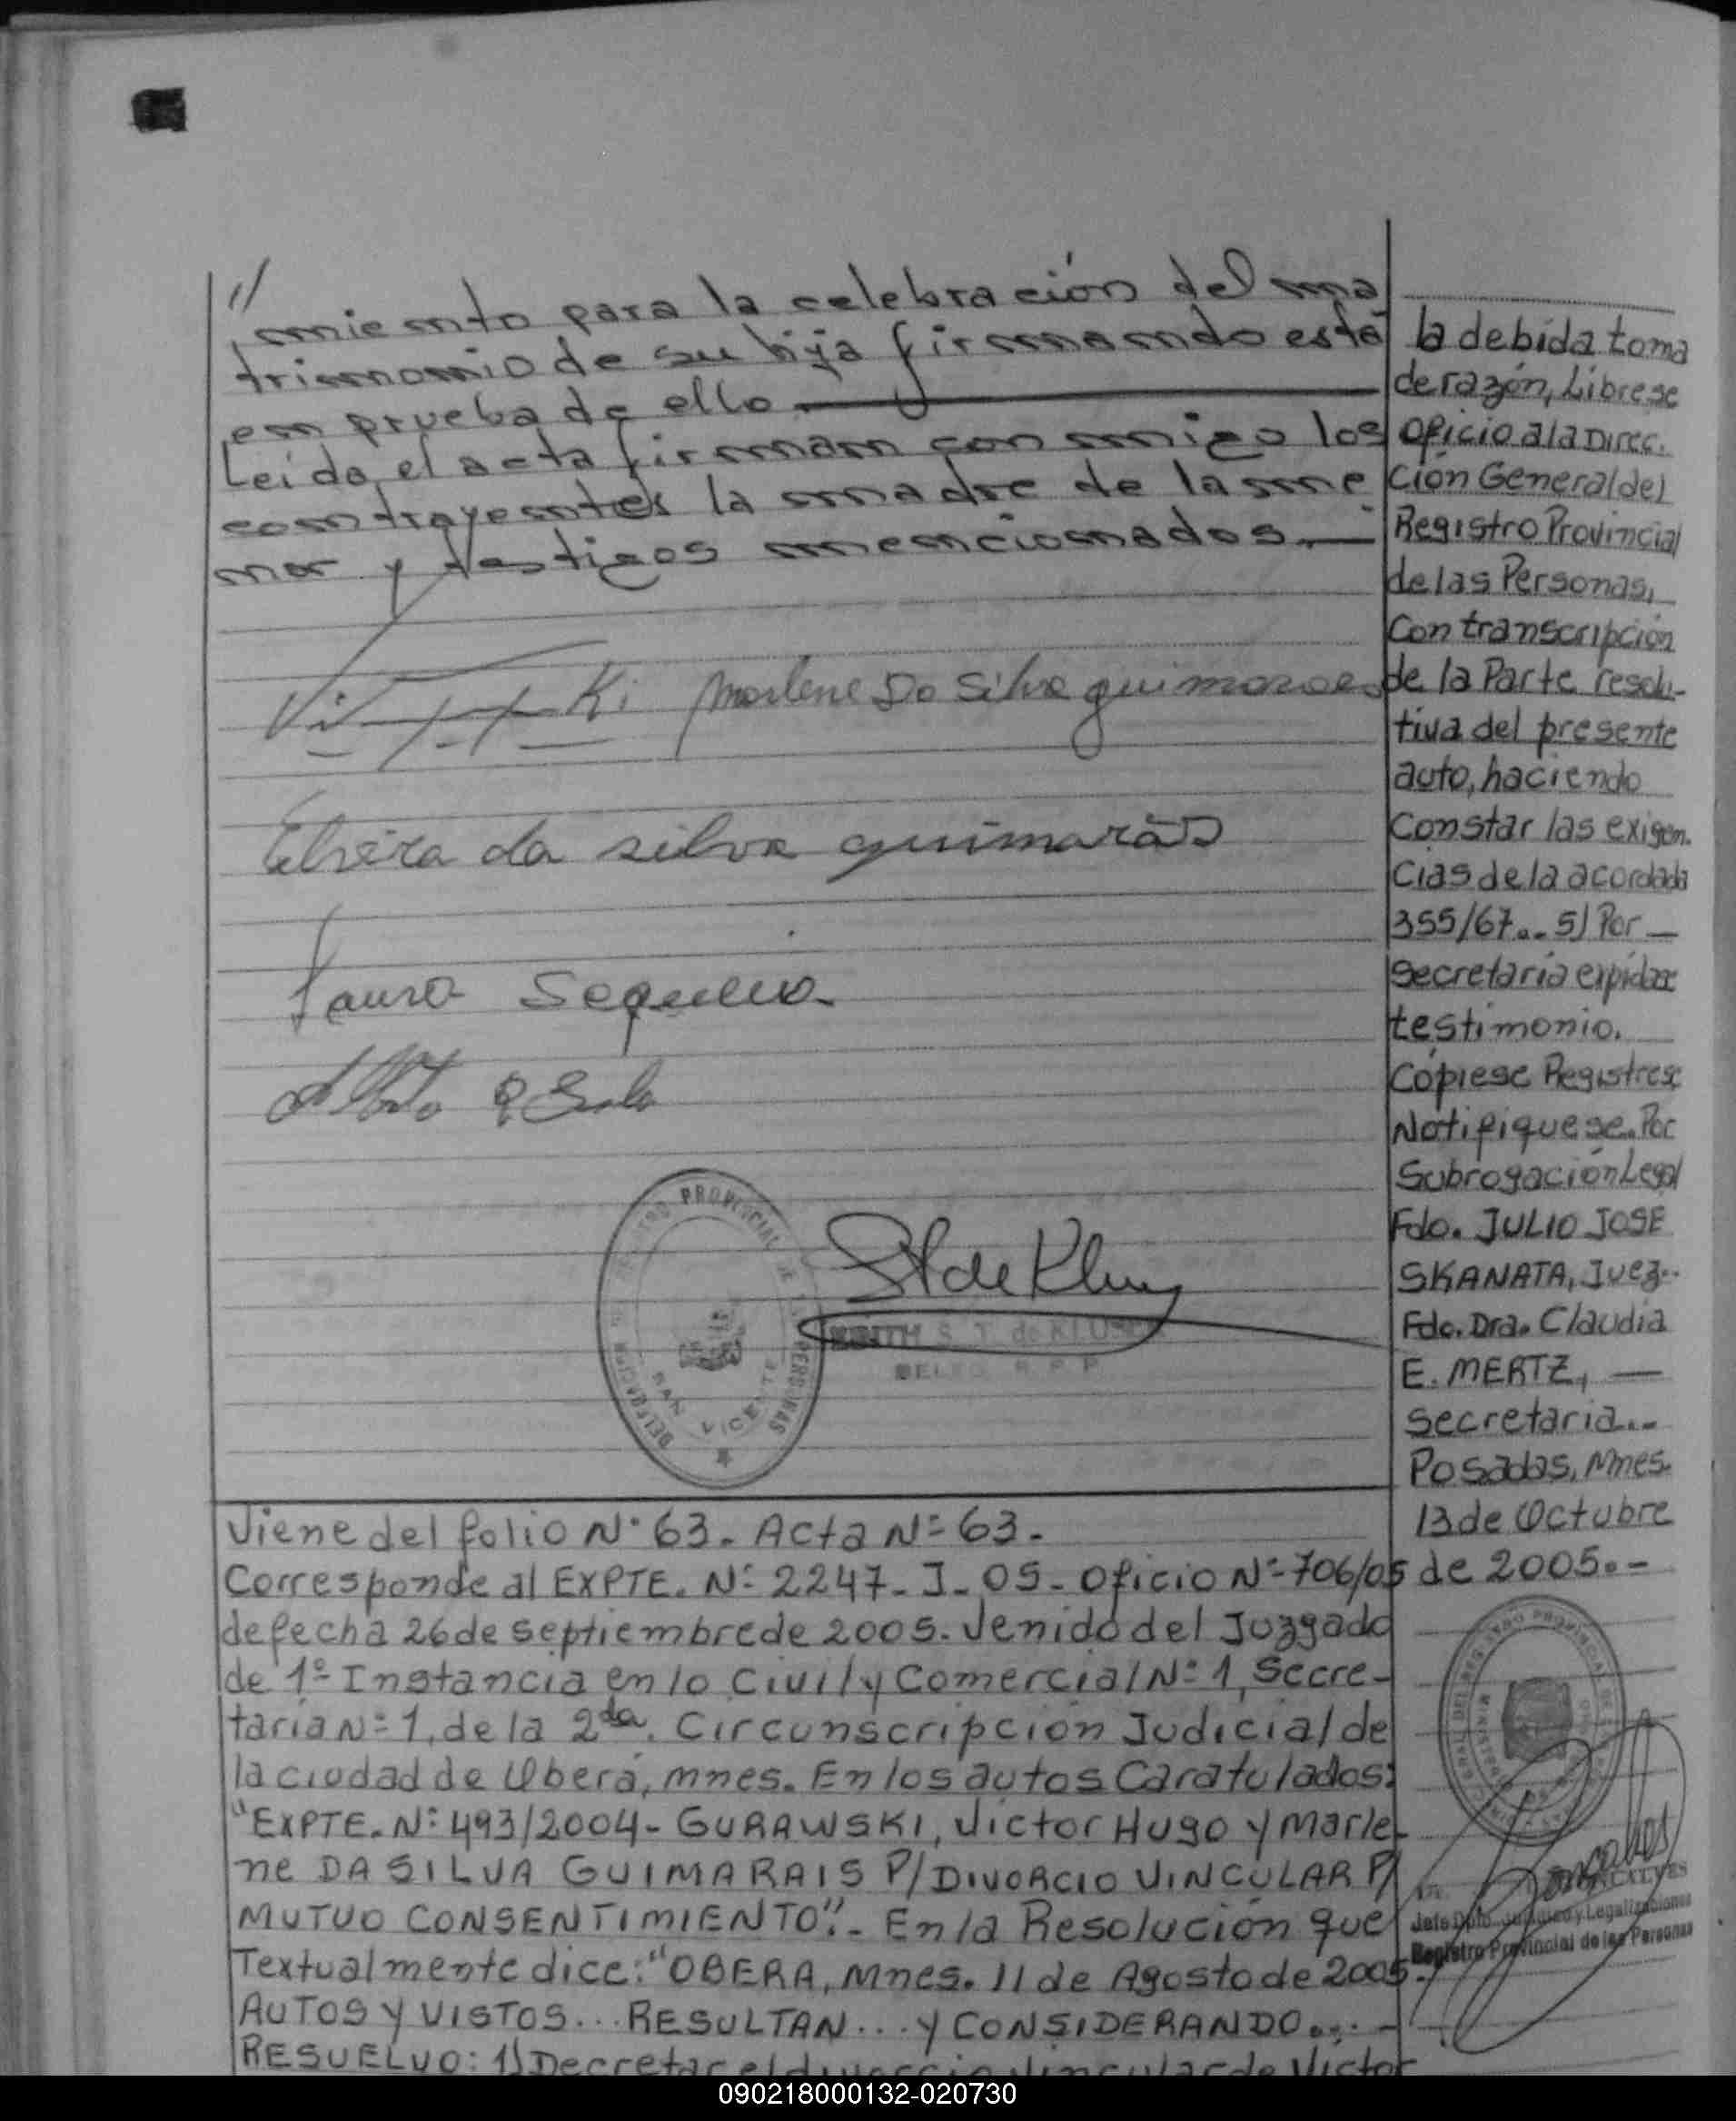 //
miento para la celebración del ma
trimonio de su hija firmando esta
en prueba de ello.
Leida el acta firman con migo los
contrayentes la madre de la me
nor y testigos mencionados.—
Marlene Da Silva guimaraes
Elvira da silva guimarãs
Laura Sequeira
REGISTRO PROVINCIAL DE LAS PERSONAS
DELEGACION
SAN VICENTE
EDITH S. T. de KLUSE
DELEG. R. P. P.
Viene del folio N° 63. Acta N° 63.
Corresponde al EXPTE. N° 2247-J-05- Oficio N° 706/05
de fecha 26 de septiembre de 2005. Venido del Juzgado
de 1° Instancia en lo Civil y Comercial N° 1, Secre-
taría N° 1, de la 2da. Circunscripción Judicial de
la ciudad de Oberá, mnes. En los autos Caratulados:
"EXPTE. N° 493/2004- GURAWSKI, Victor Hugo y Marle-
ne DA SILVA GUIMARAIS P/ DIVORCIO VINCULAR P/
MUTUO CONSENTIMIENTO".- En la Resolución que
Textualmente dice: "OBERA, Mnes. 11 de Agosto de 2005.
AUTOS Y VISTOS... RESULTAN... Y CONSIDERANDO...-
RESUELVO: 1) Decretar el divorcio vincular de Victor
la debida toma
de razón, Librese
Oficio a la Direc.
ción General del
Registro Provincial
de las Personas,
Con transcripción
de la Parte resolu-
tiva del presente
auto, haciendo
Constar las exigen.
Cias de la acordada
355/67... 5) Por —
Secretaría expidase
testimonio.
Cópiese Registrese
Notifiquese. Por
Subrogación Legal
Fdo. JULIO JOSE
SKANATA, Juez..
Fdo. Dra. Claudia
E. MERTZ, —
Secretaria...
Posadas, Mnes.
13 de Octubre
de 2005.-
Jefe Dpto. Jurídico y Legalizaciones
Registro Provincial de las Personas
090218000132-020730